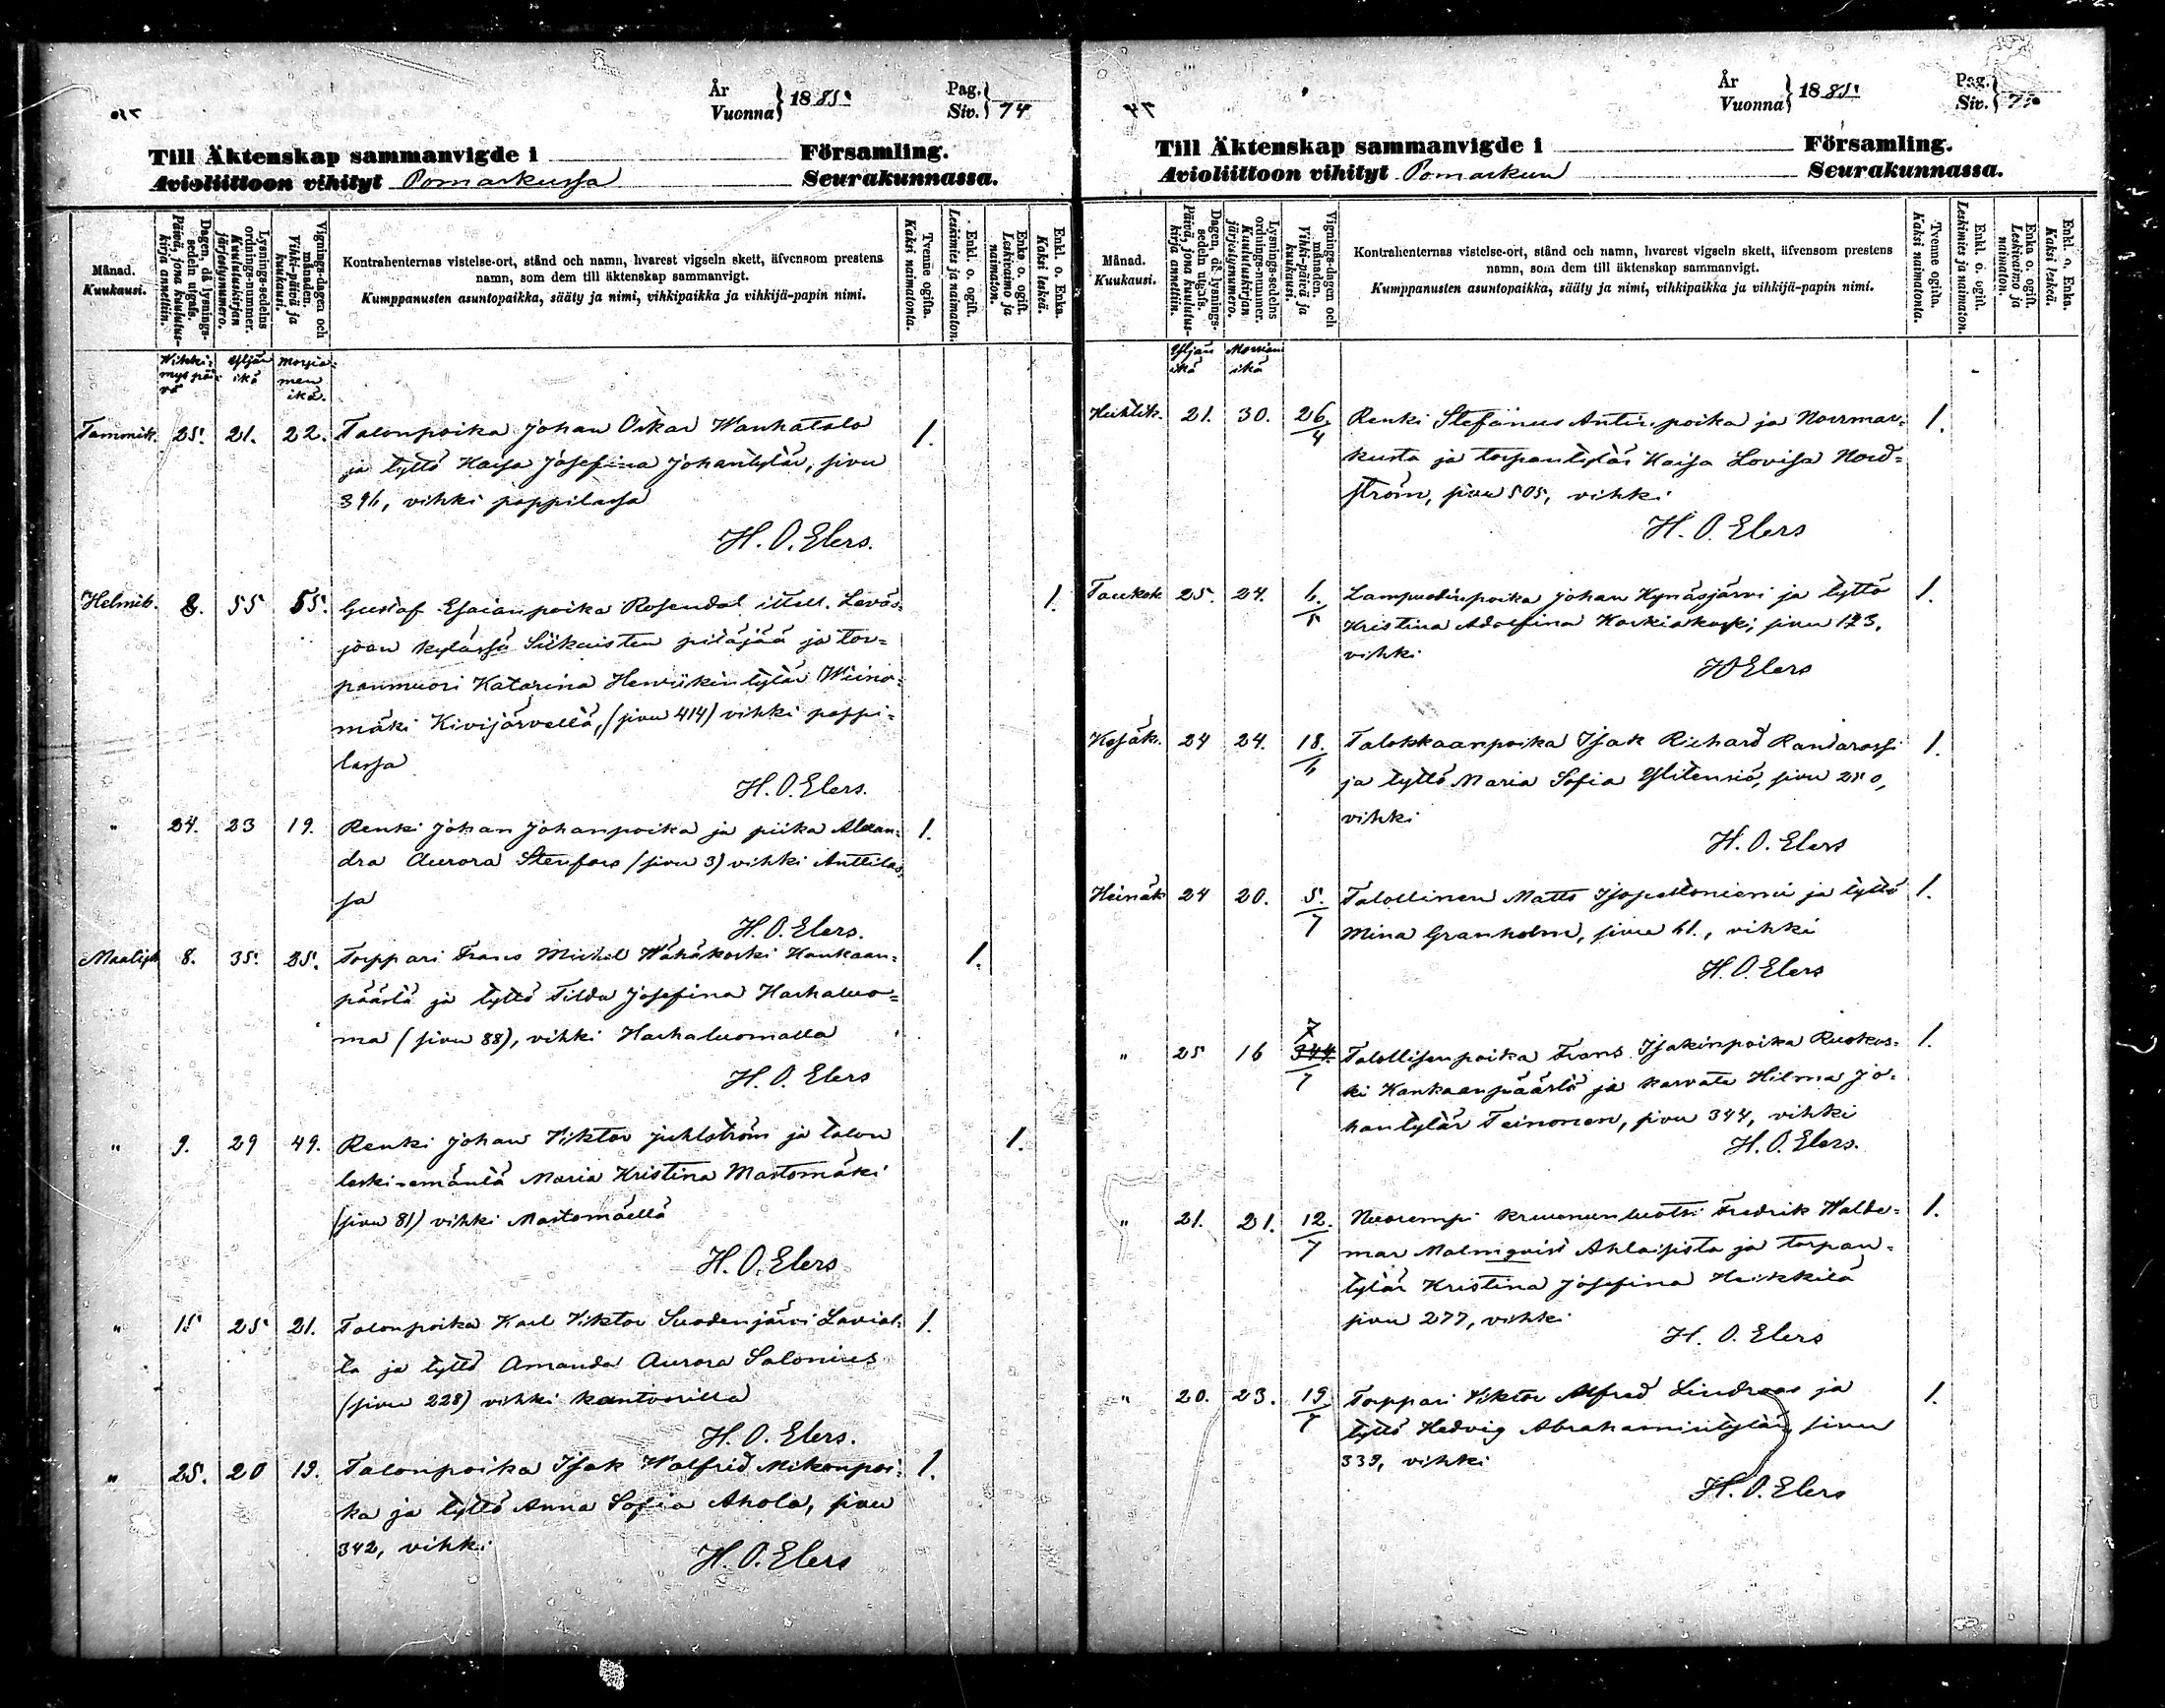 År
Vuonna } 1885.
Pag.
Siv. } 74
Till Äktenskap sammanvigde i Församling.
Avioliittoon vihityt Pomarkussa Seurakunnassa.
Månad.
Kuukausi.
Dagen, då lysnings-sedeln utgafs.
Päivä, jona kuulutus-kirja annettiin.
Lysnings-sedelns ordnings-nummer.
Kuulutuskirjan järjestysnumero.
Vignings-dagen och månaden.
Vihki-päivä ja kuukausi.
Kontrahenternas vistelse-ort, stånd och namn, hvarest vigseln skett, äfvensom prestens
namn, som dem till äktenskap sammanvigt.
Kumppanusten asuntopaikka, sääty ja nimi, vihkipaikka ja vihkijä-papin nimi.
Tvenne ogifta.
Kaksi naimatonta.
Enkl. o. ogift.
Leskimies ja naimaton.
Enka o. ogift.
Leskivaimo ja naimaton.
Enkl. o. Enka.
Kaksi leskeä.
Vihki- Yljän Morsia-
mys päi- ikä men
vä ikä.
Tammik. 25. 21. 22. Talonpoika Johan Oskar Wanhatalo 1.
ja tyttö Kaisa Josefina Johantytär, sivu
396, vihki pappilassa
H. O. Elers.
Helmik. 8. 55 55. Gustaf Esaianpoika Rosendal ittell. Leväs- 1.
joen kylässä Siikaisten pitäjää ja tor-
panmuori Katarina Henrikintytär Wiina-
mäki Kivijärvellä, (sivu 414) vihki pappi-
lassa
H. O. Elers.
" 24. 23 19. Renki Johan Johanpoika ja piika Alexan- 1.
dra Aurora Stenfors (sivu 3) vihki Anttilas-
sa
H. O. Elers.
Maalisk. 8. 35. 25. Torppari Frans Michel Wähäkoski Kankaan- 1.
päästä ja tyttö Tilda Josefina Harhaluo-
ma (sivu 88), vihki Harhaluomalla
H. O. Elers
" 9. 29 49. Renki Johan Viktor Juhlström ja talon 1.
leski-emäntä Maria Kristina Mastomäki
(sivu 81) vihki Mastomäellä
H. O. Elers
" 15 25 21. Talonpoika Karl Viktor Suodenjärvi Lavial- 1.
ta ja tyttö Amanda Aurora Salonius
(sivu 228) vihki kanttorilla
H. O. Elers.
" 25. 20 19. Talonpoika Isak Walfrid Mikonpoi- 1.
ka ja tyttö Anna Sofia Ahola, sivu
342, vihki
H. O. Elers
År
Vuonna } 1885.
Pag.
Siv. } 75
Till Äktenskap sammanvigde i Församling.
Avioliittoon vihityt Pomarkun Seurakunnassa.
Månad.
Kuukausi.
Dagen, då lysnings-sedeln utgafs.
Päivä, jona kuulutus-kirja annettiin.
Lysnings-sedelns ordnings-nummer.
Kuulutuskirjan järjestysnumero.
Vignings-dagen och månaden.
Vihki-päivä ja kuukausi.
Kontrahenternas vistelse-ort, stånd och namn, hvarest vigseln skett, äfvensom prestens
namn, som dem till äktenskap sammanvigt.
Kumppanusten asuntopaikka, sääty ja nimi, vihkipaikka ja vihkijä-papin nimi.
Tvenne ogifta.
Kaksi naimatonta.
Enkl. o. ogift.
Leskimies ja naimaton.
Enka o. ogift.
Leskivaimo ja naimaton.
Enkl. o. Enka.
Kaksi leskeä.
Yljän Morsian
ikä ikä
Huhtik. 21. 30. 26/4 Renki Stefanus Antinpoika ja Norrmar- 1.
kusta ja torpantytär Kaisa Lovisa Nord-
ström, sivu 505, vihki
H. O. Elers
Toukok 25. 24. 6./5 Lampuotinpoika Johan Kynäsjärvi ja tyttö 1.
Kristina Adolfina Koskiakoski, sivu 173,
vihki
HOElers
Kesäk. 24 24. 18./6 Talokkaanpoika Isak Richard Randarossi 1.
ja tyttö Maria Sofia Ylitensiö, sivu 280,
vihki
H. O. Elers
Heinäk 24 20. 5./7 Talollinen Matts Isopeltoniemi ja tyttö 1.
Mina Granholm, sivu 61., vihki
H. O. Elers
" 25 16 7/7 Talollisenpoika Frans Isakinpoika Ruokos- 1.
ki Kankaanpäästä ja kasvate Hilma Jo-
hantytär Teinonen, sivu 344, vihki
H. O. Elers.
" 21. 21. 12./7 Nuorempi kruununluotsi Fredrik Walde- 1.
mar Malmqvist Ahlaisista ja torpan-
tytär Kristina Josefina Heikkilä
sivu 277, vihki
H. O. Elers
" 20. 23. 19/7 Torppari Viktor Alfred Lindroos ja 1.
tyttö Hedvig Abrahamintytär, sivu
339, vihki
H. O. Elers